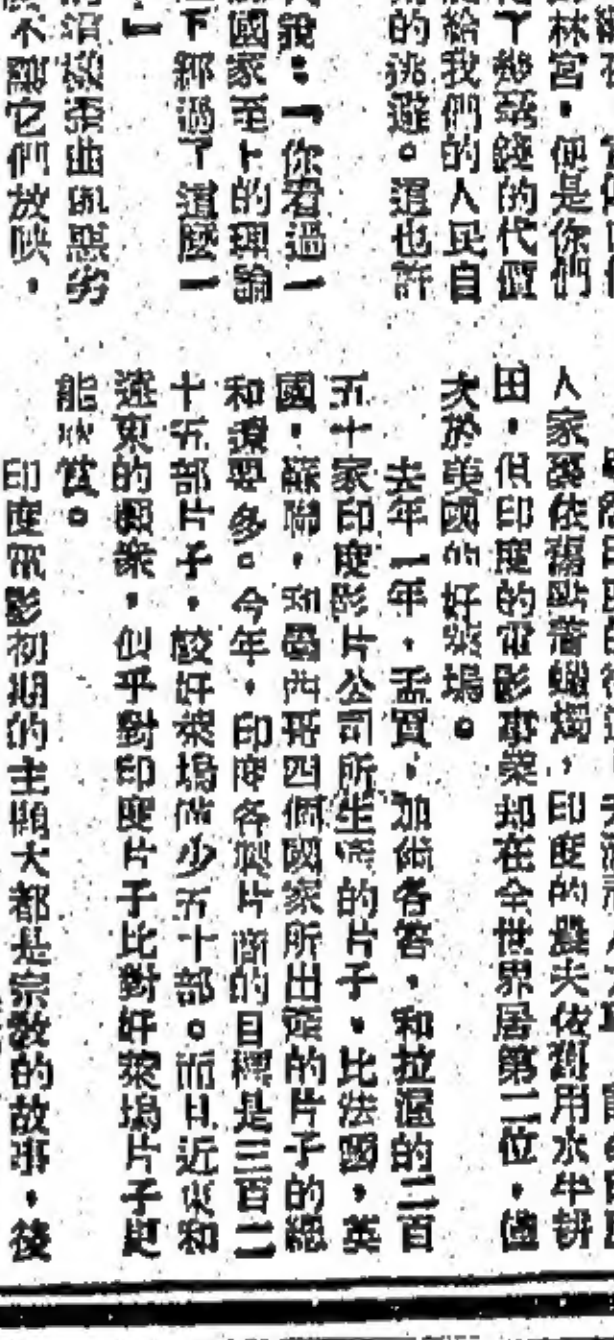 林宮，但是你們
了幾盎錢的代價
給我們的人民自
的逃避。這也許
說：「你看過一
國家至上的理論
下鄉過了這麼一
」
歪曲與惡劣
不讓它們放映，
人家裏依舊點著蠟燭，印度的農夫依舊用水牛耕
田，但印度的電影事業却在全世界居第二位，僅
次於美國的好萊塢。
去年一年，孟買，加爾各答，和拉渥的二百
五十家印度影片公司所生產的片子，比法國，英
國，蘇聯，和墨西哥四個國家所出產的片子的總
和還要多。今年，印度各製片商的目標是三百二
十五部片子，較好萊塢僅少五十部。而且近東和
遠東的觀衆，似乎對印度片子比對好萊塢片子更
能欣賞。
印度電影初期的主題大都是宗敎的故事，後